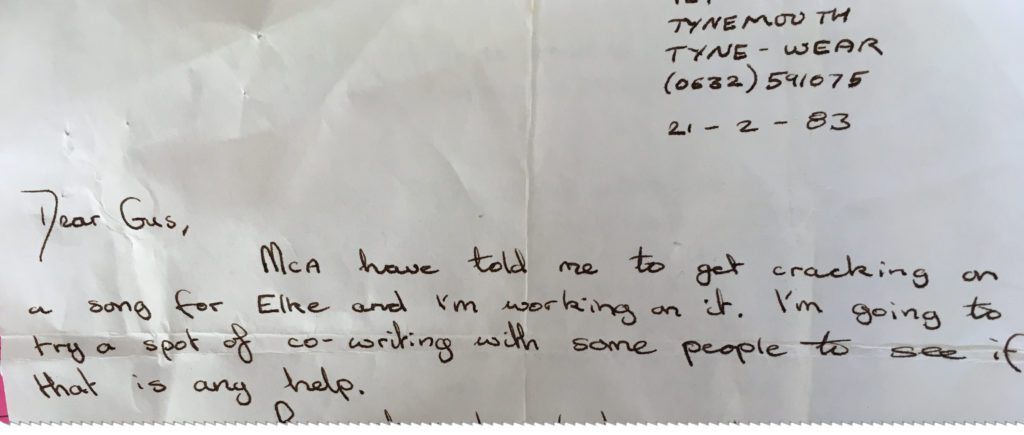 TYNEMOUTH
TYNE - WEAR
(0632) 591075
21 - 2 - 83
Dear Gus,
McA have told me to get cracking on
a song for Elke and I'm working on it. I'm going to
try a spot of co-writing with some people to see if
that is any help.